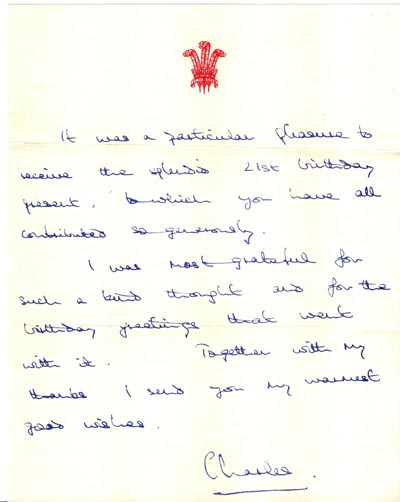 It was a particular pleasure to
receive the splendid 21st birthday
present, to which you have all
contributed so generously.
I was most grateful for
such a kind thought and for the
birthday greetings that went
with it. Together with my
thanks I send you my warmest
good wishes.
Charles.